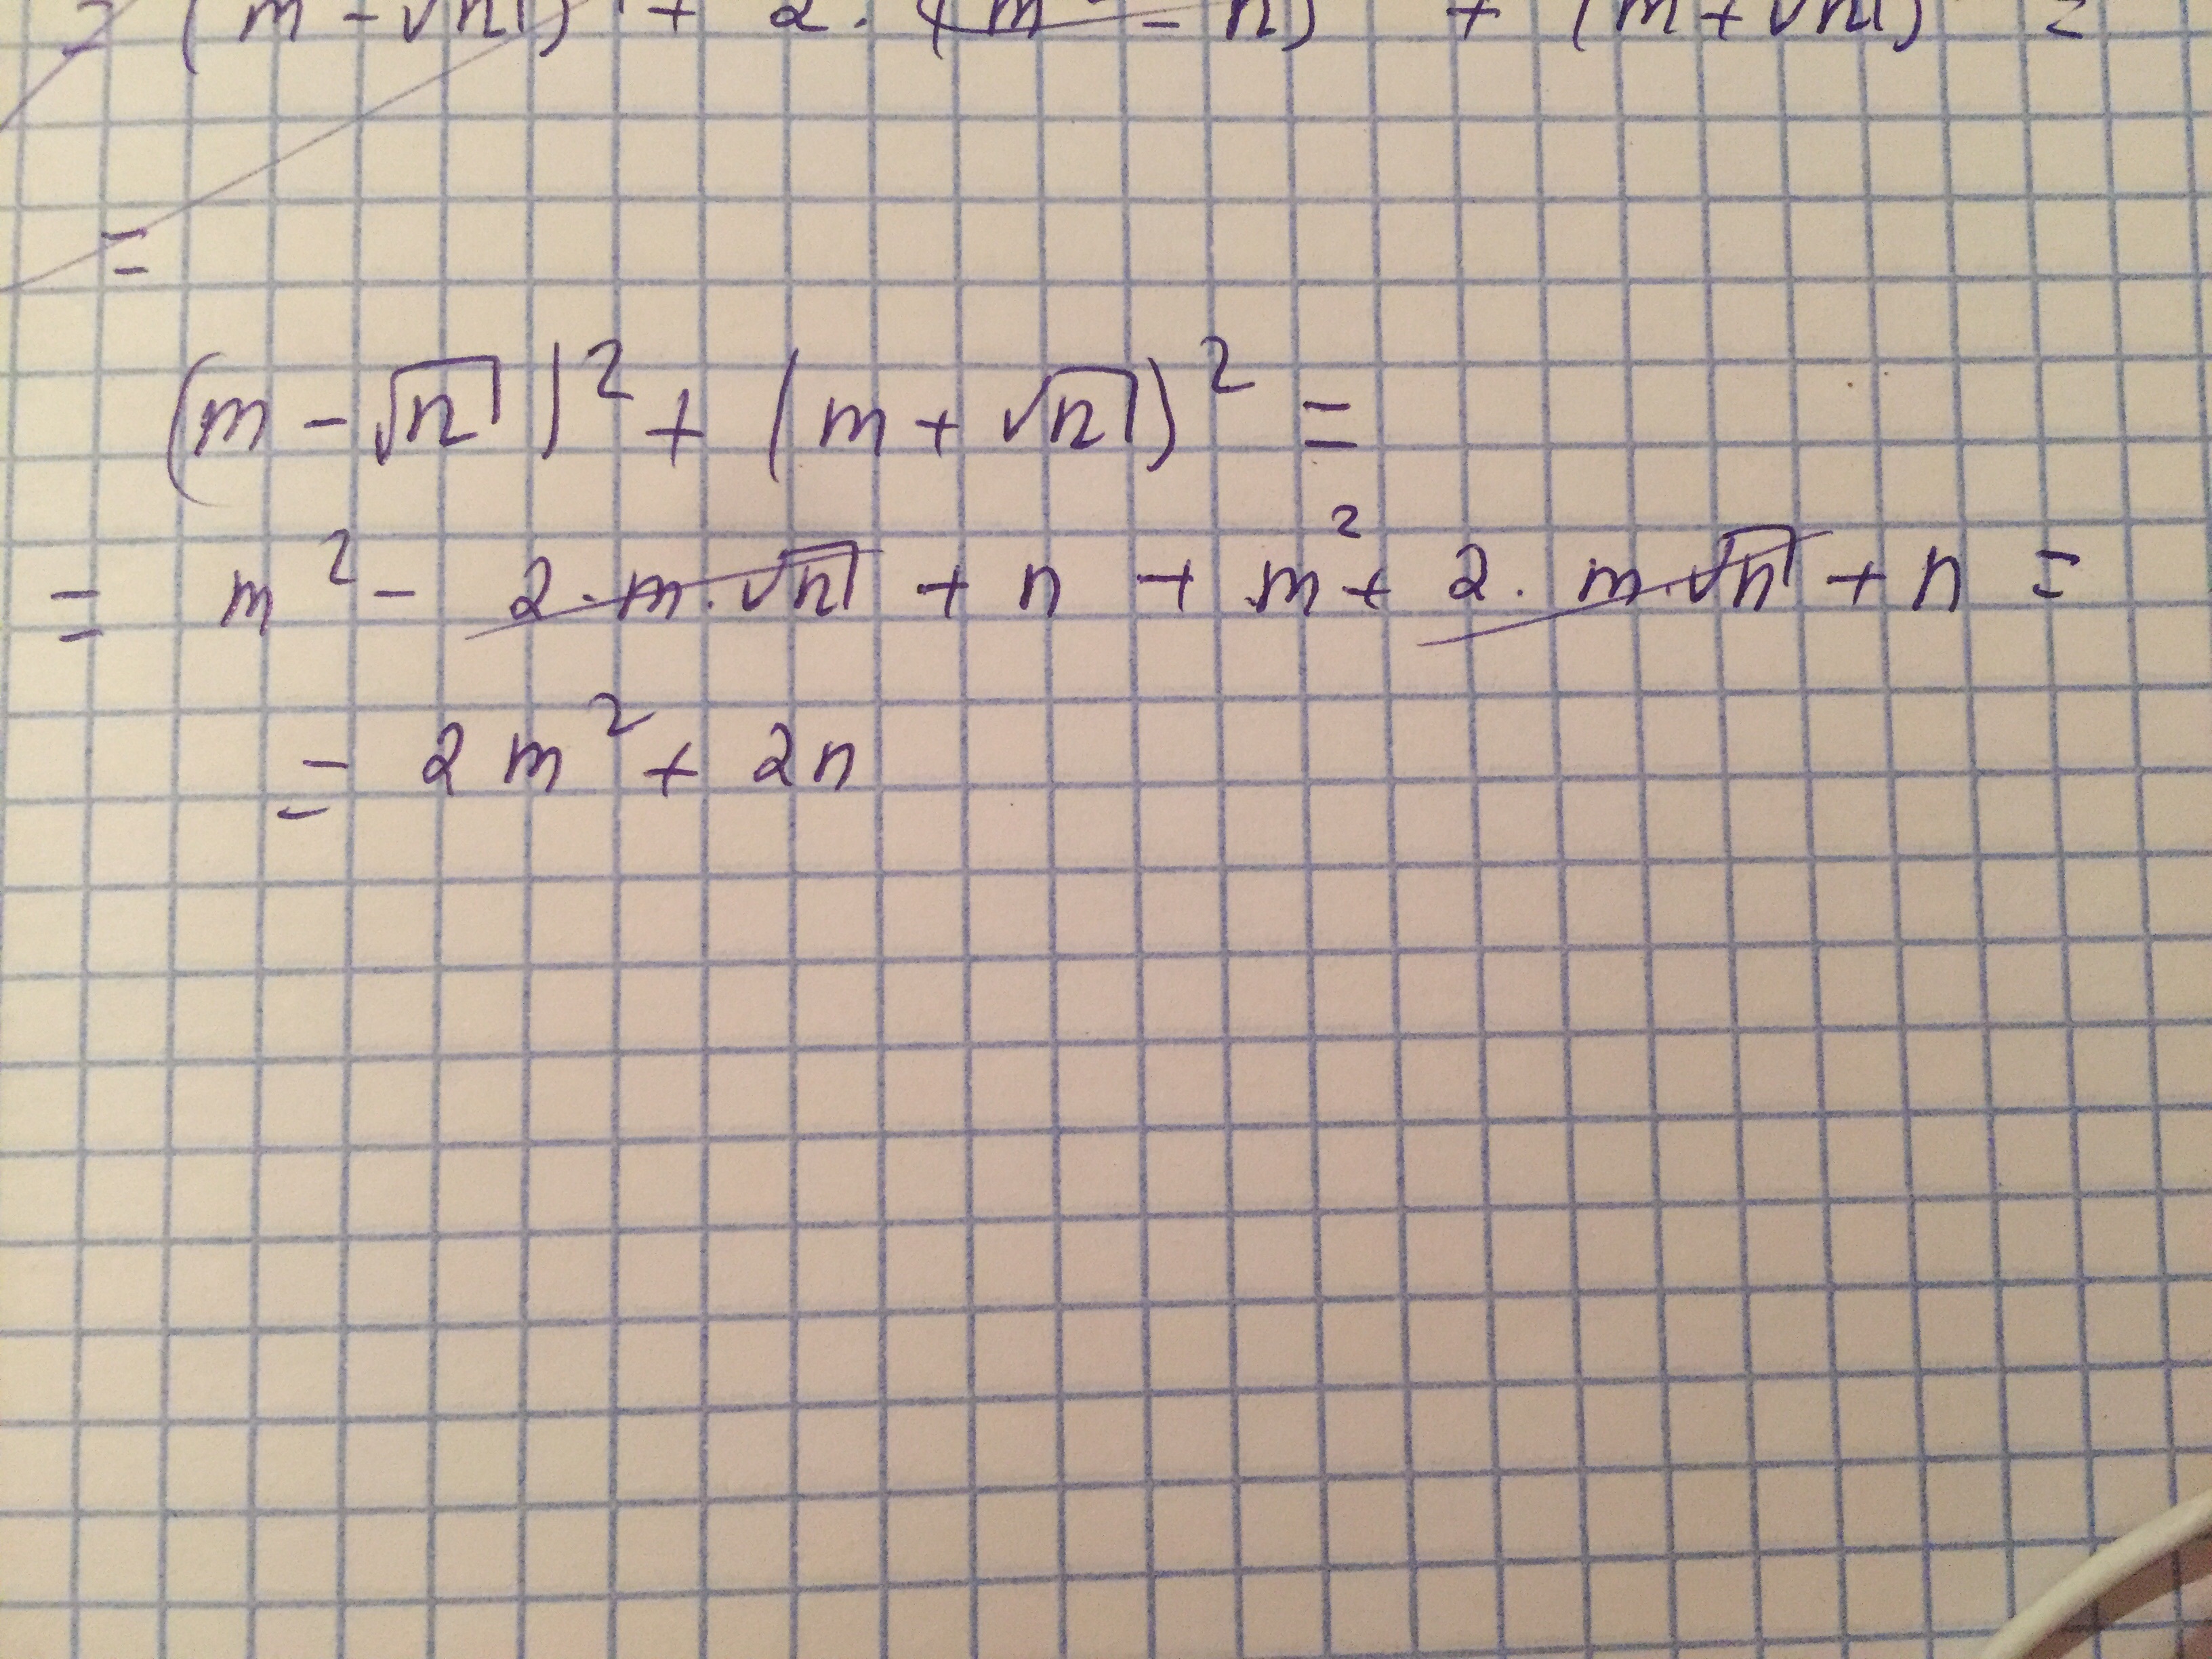 = (m - √n) + 2 · (m - n) + (m + √n) =
=
(m - √n)² + (m + √n)² =
= m² - 2 · m · √n + n + m² + 2 · m · √n + n =
= 2m² + 2n